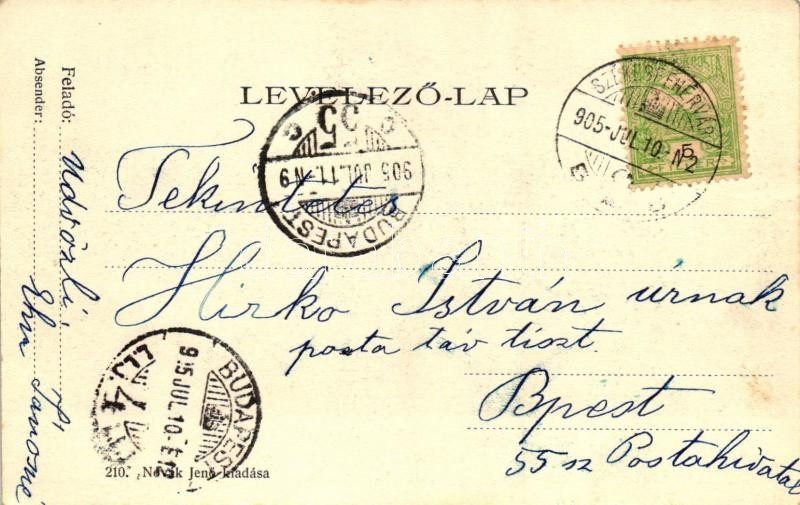 LEVELEZŐ-LAP
Tekintetes
Hirko István úrnak
posta táv tiszt.
Bpest
55 sz Postahivatal
Feladó:
Absender:
Üdvözli
210. Novák Jenő kiadása
SZÉKESFEHÉRVÁR
905-JUL.10-N2
55
905 JUL.11-N9
BUDAPEST
BUDAPEST
905 JUL.10-E